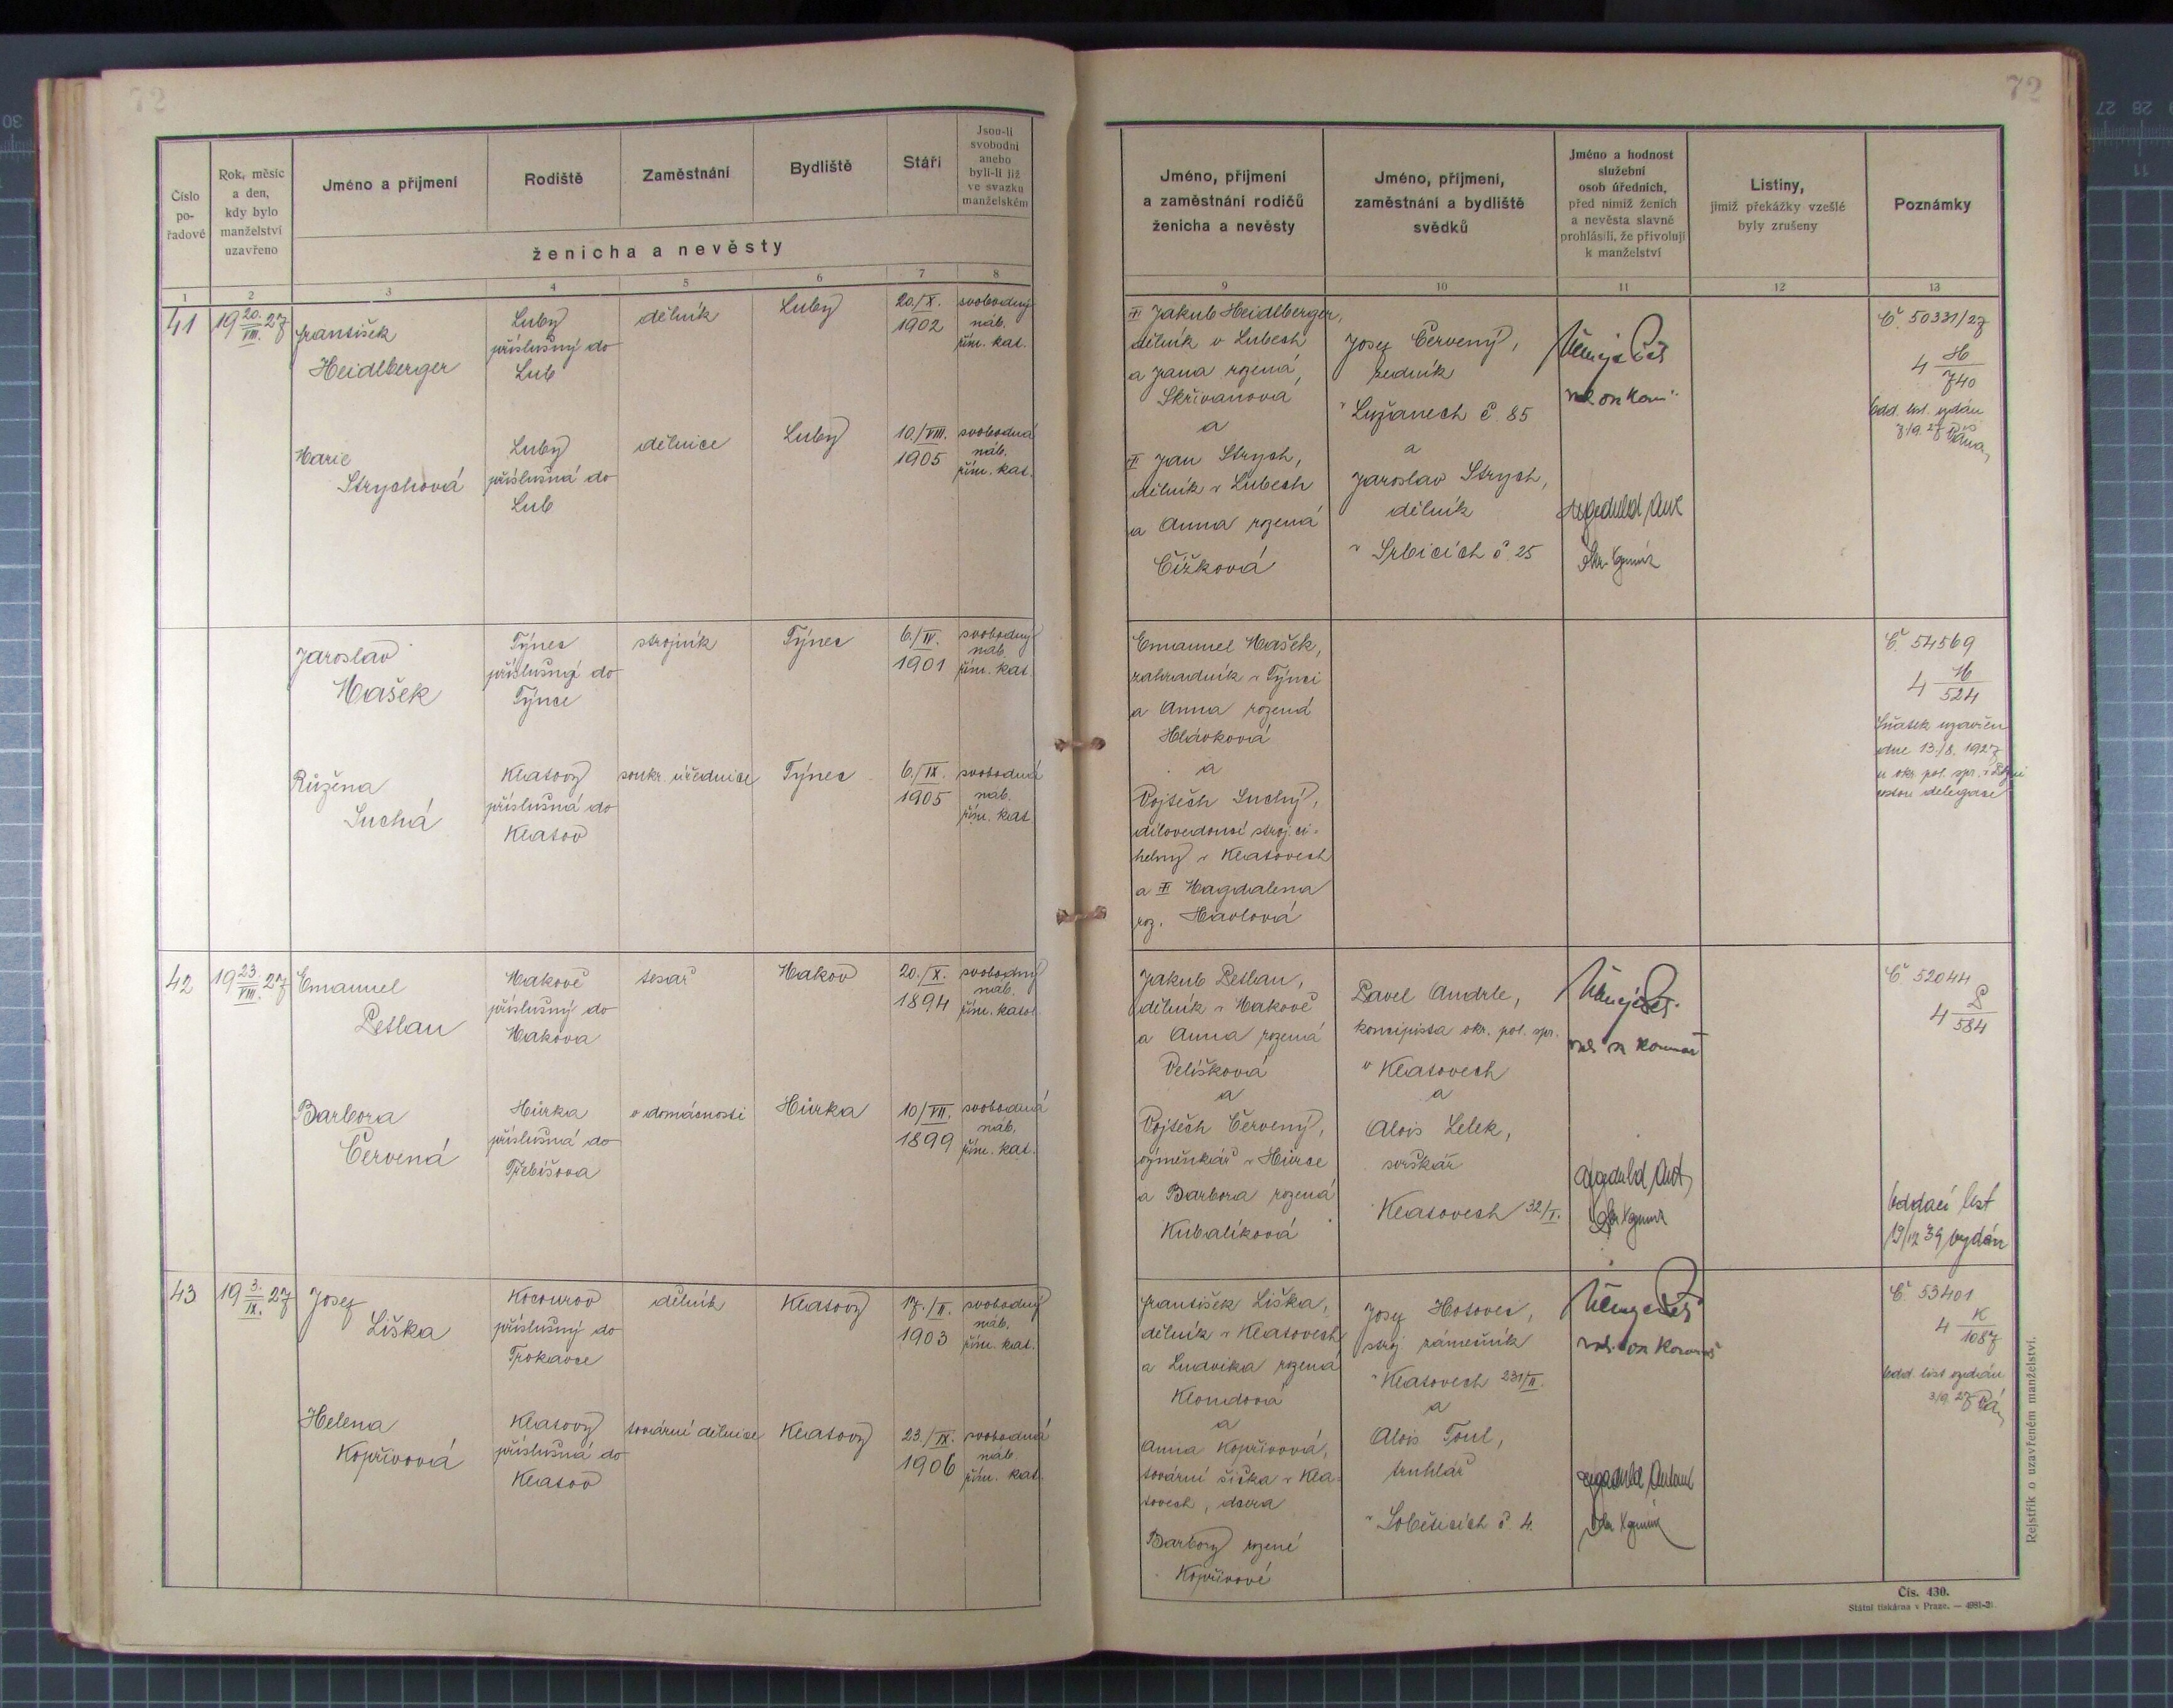 72
Číslo
po-
řadové
Rok, měsíc
a den,
kdy bylo
manželství
uzavřeno
Jméno a příjmení
Rodiště
Zaměstnání
Bydliště
Stáří
Jsou-li
svobodni
anebo
byli-li již
ve svazku
manželském
ženicha a nevěsty
1 2 3 4 5 6 7 8
41
19 20./VIII. 27
František
Heidlberger
Luby
příslušný do
Lub
dělník
Luby
20./X.
1902
svobodný
náb.
řím. kat.
Marie
Strychová
Luby
příslušná do
Lub
dělnice
Luby
10./VIII.
1905
svobodná
náb.
řím. kat.
Jaroslav
Mašek
Týnec
příslušný do
Týnce
strojník
Týnec
6./IV.
1901
svobodný
náb.
řím. kat.
Růžena
Suchá
Klatovy
příslušná do
Klatov
soukr. úřednice
Týnec
6./IX.
1905
svobodná
náb.
řím. kat.
42
19 23./VIII. 27
Emanuel
Petlan
Makově
příslušný do
Makova
tesař
Makov
20./X.
1894
svobodný
náb.
řím. katol.
Barbora
Červená
Hůrka
příslušná do
Třebíšova
v domácnosti
Hůrka
10/VII.
1899
svobodná
náb.
řím. kat.
43
19 3./IX. 27
Josef
Liška
Kocourov
příslušný do
Trokavce
dělník
Klatovy
17./II.
1903
svobodný
náb.
řím. kat.
Helena
Kopřivová
Klatovy
příslušná do
Klatov
tovární dělnice
Klatovy
23./IX.
1906
svobodná
náb.
řím. kat.
72
Jméno, příjmení
a zaměstnání rodičů
ženicha a nevěsty
Jméno, příjmení,
zaměstnání a bydliště
svědků
Jméno a hodnost
služební
osob úředních,
před nimiž ženich
a nevěsta slavně
prohlásili, že přivolují
k manželství
Listiny,
jimiž překážky vzešlé
byly zrušeny
Poznámky
9 10 11 12 13
Jakub Heidlberger,
dělník v Lubech
a Jana rozená
Skřivanová
a
Jan Strych,
dělník v Lubech
a Anna rozená
Čížková
Josef Červený,
zedník
v Lužanech č. 85
a
Jaroslav Strych,
dělník
v Srbicích č. 25
Č. 50331/27
4 H/740
Odd. list. vydán
7/9. 27
Emanuel Mašek,
zahradník v Týnci
a Anna rozená
Hlávková
a
Vojtěch Suchý,
dílovedoucí stroj. ci-
helny v Klatovech
a Magdalena
roz. Havlová
Č. 54569
4 M/524
Sňatek uzavřen
dne 13./8. 1927
u okr. pol. spr. v
delegace
Jakub Petlan,
dělník v Makově
a Anna rozená
Velíšková
a
Vojtěch Červený,
výměnkář v Hůrce
a Barbora rozená
Kubalíková
Pavel Andrle,
koncipista okr. pol. spr.
v Klatovech
a
Alois Lelek,
Klatovech 32/I.
Č. 52044
4 P/584
Oddací list
19/12 39 vydán
František Liška,
dělník v Klatovech
a Ludvika rozená
Kloudová
a
Anna Kopřivová,
tovární šička v Kla-
tovech, dcera
Barbory rozené
Kopřivové
Josef Hotovec,
stroj. zámečník
v Klatovech 231/II.
a
Alois Toul,
truhlář
v Soběticích č. 4.
Č. 53401
4 K/1087
Odd. list vydán
3/9. 27
Rejstřík o uzavřeném manželství.
Čís. 430.
Státní tiskárna v Praze. — 4981-21.